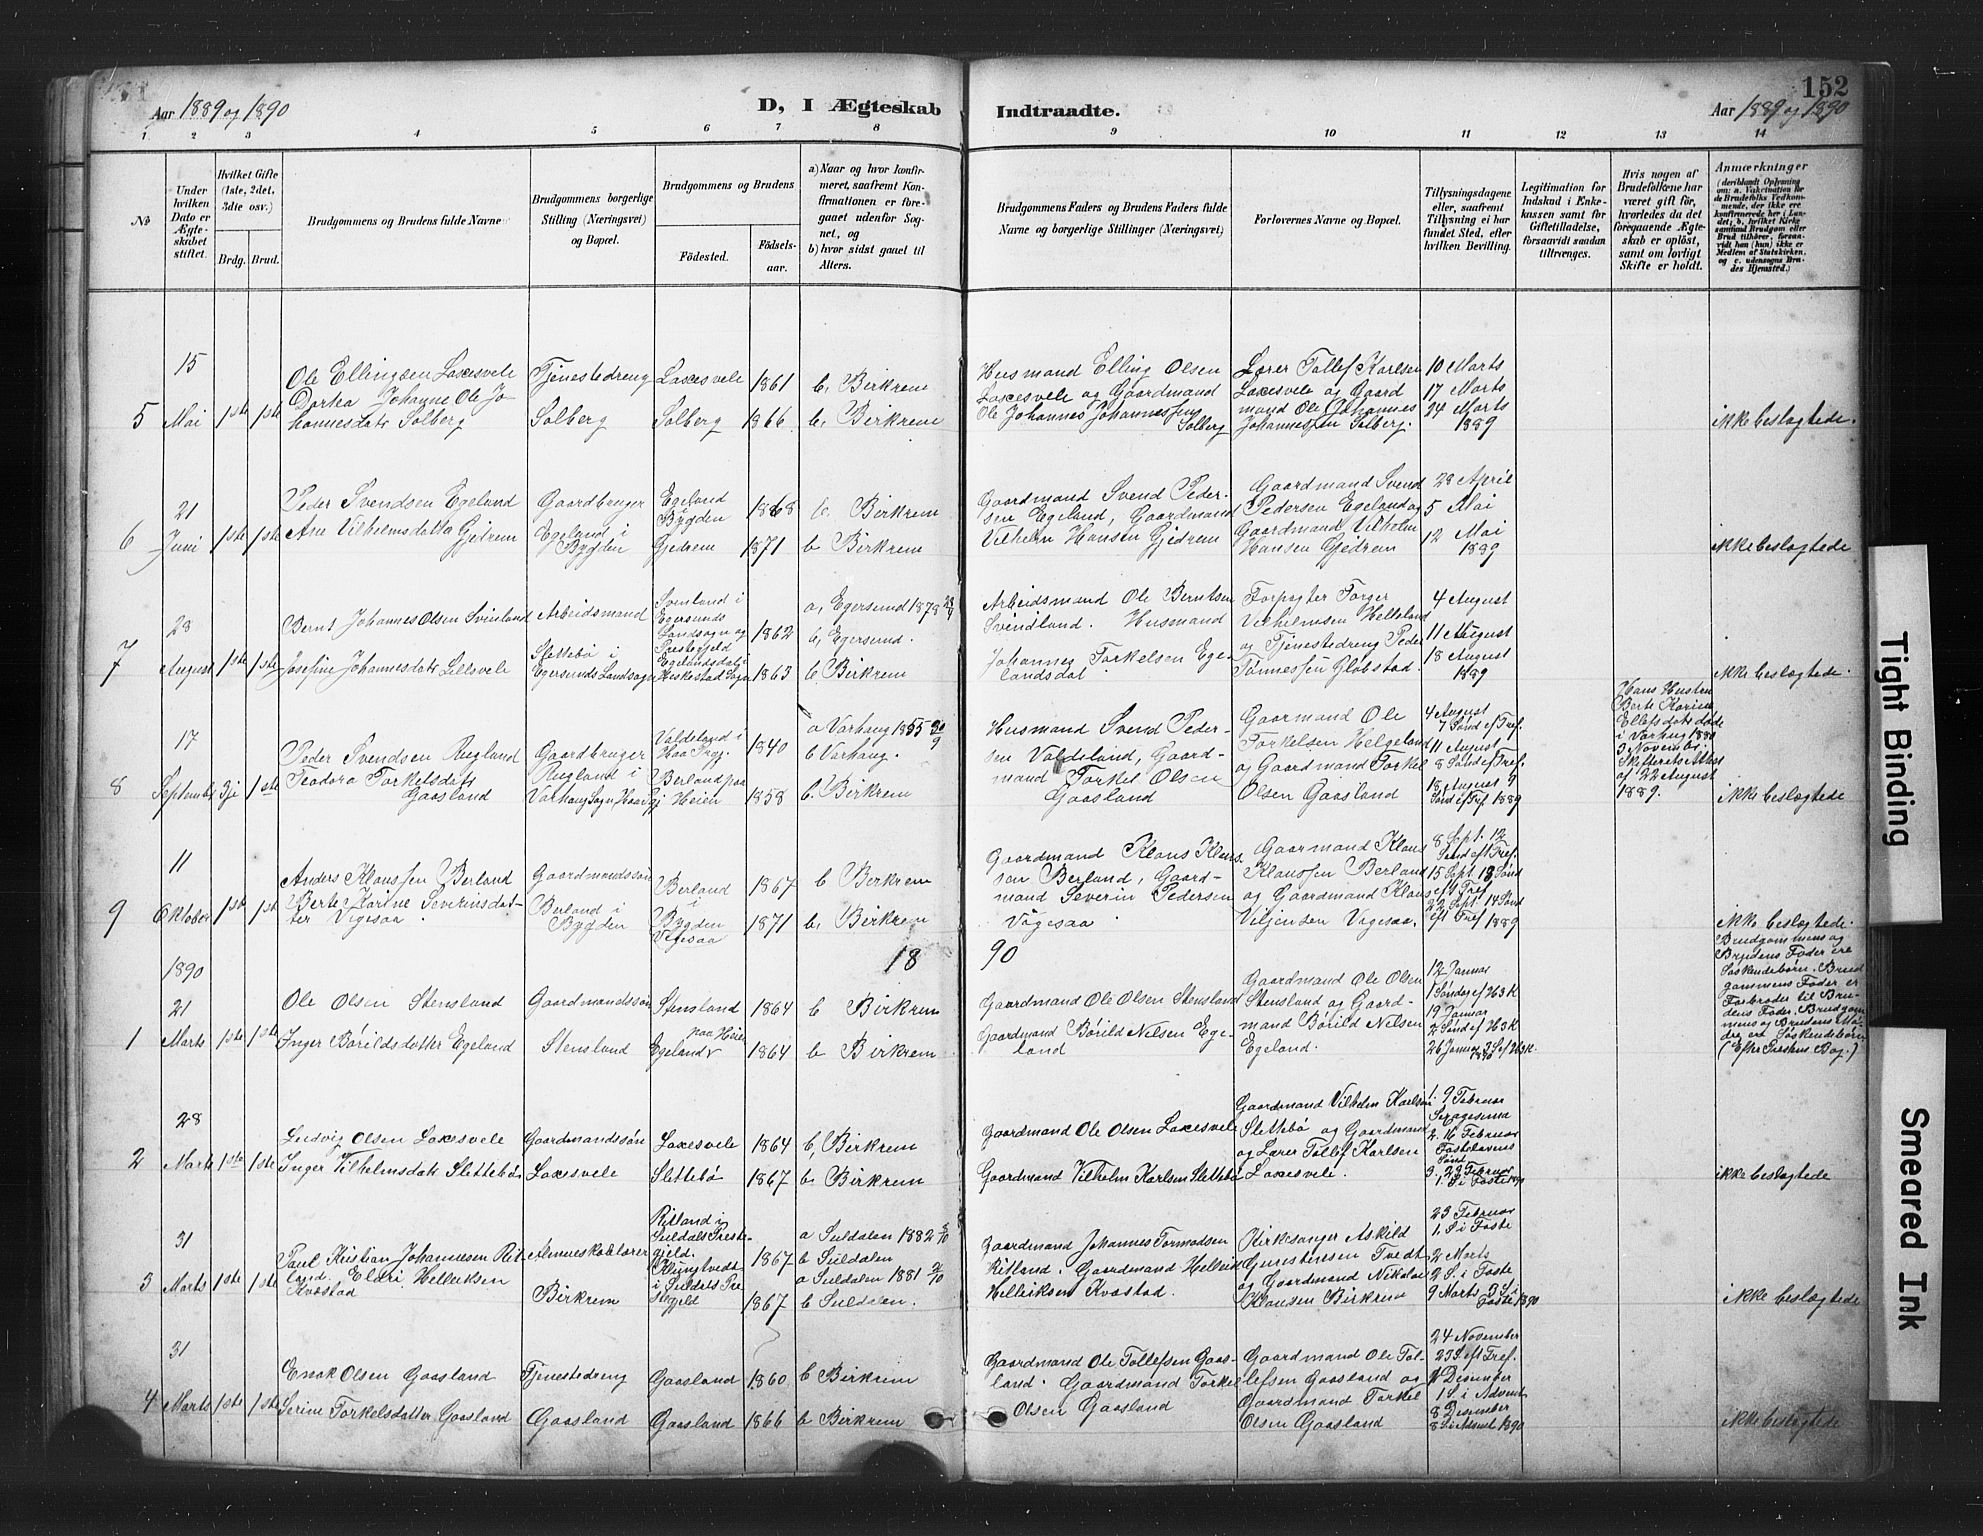 152
Aar 1889 og 1890
D, I Ægteskab
Indtraadte.
Aar 1889 og 1890
1 2 3 4 5 6 7 8 9 10 11 12 13 14
No
Under hvilken Dato er Ægteskabet stiftet.
Hvilket Gifte (1ste, 2det, 3dte osv.)
Brdg. Brud.
Brudgommens og Brudens fulde Navne
Brudgommens borgerlige Stilling (Næringsvei) og Bopæl.
Brudgommens og Brudens
Fødested.
Fødselsaar.
a) Naar og hvor konfirmeret, saafremt Konfirmationen er foregaaet udenfor Sognet, og
b) hvor sidst gaaet til Alters.
Brudgommens Faders og Brudens Faders fulde Navne og borgerlige Stillinger (Næringsvei)
Forlovernes Navne og Bopæl.
Tillysningsdagene eller, saafremt Tillysning ei har fundet Sted, efter hvilken Bevilling.
Legitimation for Indskud i Enkekassen samt for Giftetilladelse, forsaavidt saadan tiltrænges.
Hvis nogen af Brudefolkene har været gift før, hvorledes da det foregaaende Ægteskab er opløst, samt om lovligt Skifte er holdt.
Anmærkninger
(deriblandt Oplysning om: a. Vakcination for de Brudefolks Vedkommende, der ikke ere konfirmerede her i Landet; b. hvilket Kirkesamfund Brudgom eller Brud tilhører, forsaavidt han (hun) ikke er Medlem af Statskirken, og c. udensogns Brudes Hjemsted.)
5
15
Mai
1ste 1ste
Ole Ellingsen Laxesvele
Dorkea Johanne Ole Johannesdatr Solberg
Tjenestedreng
Solberg
Laxesvele 1861
Solberg 1866
b, Birkrem
b, Birkrem
Husmand Elling Olsen
Laxesvele og Gaardmand
Ole Johannes Johannessen
Solberg
Lærer Tollef Karlsen
Laxesvele og Gaard
mand Ole Johannes
Johannessen Solberg.
10 Marts
17 Marts
24 Marts
1889
ikke beslægtede.
6
21
Juni
1ste 1ste
Peder Svendsen Egeland
Ane Vilhelmsdatta Gjedrem
Gaardbruger
Egeland i
Bygden
Egeland
i
Bygden 1868
Gjedrem 1871
b. Birkrem
b Birkrem
Gaardmand Svend Peder-
sen Egeland, Gaardmand
Vilhelm Hansen Gjedrem
Gaardmand Svend
Pedersen Egeland og
Gaardmand Vilhelm
Hansen Gjedrem
28 April
5 Mai
12 Mai
1889
ikke beslægtede
7
28
August
1ste 1ste
Bernt Johannes Olsen Svinland
Josefine Johannesdatr Lillsvele
Arbeidsmand
Slettebö i
Egersunds Landsogn
Svinland i
Egersunds
Landsogn og
Prestegjeld 1862
Egelandsdal i
Heskestad Sogn 1863
a, Egersund 1878
b, Egersund.
b Birkrem
Arbeidsmand Ole Berntsen
Svindland. Husmand
Johannes Torkelsen Ege-
landsdal
Forpagter Torger
Vilhelmsen Helleland
og Tjenestedreng Peder
Tønnessen Globstad.
4 August
11 August
18 August
1889
ikke beslægtede.
8
17
September
3je 1ste
Peder Svendsen Rugland
Teodora Torkelsdatr
Gaasland
Gaardbruger
Rugland i
Varhaug Sogn Haa Prgj
Valdeland i
Haa Prgj. 1840
Berland paa
Heien 1858
a Varhaug 1855
b Varhaug.
b. Birkrem
Husmand Svend Peder-
sen Valdeland, Gaard-
mand Torkel Olsen
Gaasland
Gaarmand Ole
Torkelsen Helgeland
og Gaardmand Torkel
Olsen Gaasland
4 August
7 Sønd ef Tref.
11 August
8 Sønd ef Tref.
18 August 9
Sønd ef Tref 1889
Hans Hustru
Berte Karine
Ellefsdatr døde
i Varhug 1880
3 Novembr.
Skifterets Attest
af 22 August
1889.
ikke beslægtede
9
11
Oktober
1ste 1st
Anders Klaussen Berland
Berte Karine Severinsdat-
ter Vigesaa
Gaardmandssön
Berland i
Bygden
Berland
i
Bygden 1867
Vigesaa 1871
b Birkrem
b, Birkrem
Gaardmand Klaus Klaus
sen Berland, Gaard-
mand Severin Pedersen
Vigesaa
Gaarmand Klaus
Klaussen Berland
og Gaardmand Klaus
Viljensen Vigesaa.
8 Sept. 12
Sønd eft Tref.
15 Sept 13 Sønd
eft Tref
22 Sept 14 Sønd
eft Tref 1889
ikke beslægtede.
1890
18 90
1
21
Marts
1ste 1ste
Ole Olsen Stensland
Inger Børildsdatter Egeland
Gaardmandssön
Stensland
Stensland 1864
Egeland paa Heien 1864
b Birkrem
b Birkrem
Gaardmand Ole Olsen Stensland
Gaardmand Børild Nilsen Ege-
land
Gaardmand Ole Olsen
Stensland og Gaard-
mand Børild Nilsen
Egeland.
12 Januar
1 Søndag ef H3K
19 Januar
2 Sønd ef H3K
26 Januar 3 S ef H3K.
1890
Brudgommens og
Brudens Fader ere
Søskendebørn. Brud
gommens Fader er
Farbroder til Bru-
dens Fader. Brudgom
mens og Brudens Mo-
dre ere Søskendebørn
(Efter Prestens Bog.)
2
28
Marts
1ste 1ste
Ludvig Olsen Laxesvele
Inger Vilhelmsdatr Slettebö
Gaardmandssön
Laxesvele
Laxesvele 1864
Slettebö 1867
b, Birkrem
b. Birkrem
Gaardmand Ole Olsen Laxesvele
Gaardmand Vilhelm Karlsen Slettebö
Gaardmand Vilhelm Karlsen
Slettebø og Gaardmand
og Lærer Tollef Karlsen
Laxesvele.
1. 9 Februar
Sexagesima
2. 16 Februar
Fastelavens
Sønd
3. 23 Februar
1. S i Faste 1890
ikke beslægtede
3
31
Marts
1ste 1ste
Paul Kristian Johannesen Rit-
land. Eldri Helleiksen
Kvæstad
Almueskolelærer
Birkrem
Ritland i
Suldals Preste-
gjeld. 1867
i Suldals Pre
stegjeld 1867
a Suldalen 1882
b Suldalen
a Suldalen 1881
b Suldalen.
Gaardmand Johannes Tormodsen
Ritland. Gaardmand Helleik
Helleiksen Kvæstad.
Kirkesanger Askild
Gunsteinsen Tvedt
og Gaardmand Nikolai
Klausen Birkrem
23 Februar
1. S i Faste
2 Marts
2 S. i Faste
9 Marts 3 S i
Faste 1890
ikke beslægtede
4
31
Marts
1ste 1ste
Enok Olsen Gaasland
Serine Torkelsdatter Gaasland
Tjenestedreng
Gaasland
Gaasland 1860
Gaasland 1866
b Birkrem
b Birkrem
Gaardmand Ole Tollefsen Gaas-
land. Gaardmand Torkel
Olsen Gaasland
Gaardmand Ole Tol-
lefsen Gaasland og
Gaardmand Torkel
Olsen Gaasland
24 November
23 S eft Tref.
1 Desember
1 S. i Advent
8 Desember
ikke beslægtede
Tight Binding
Smeared Ink